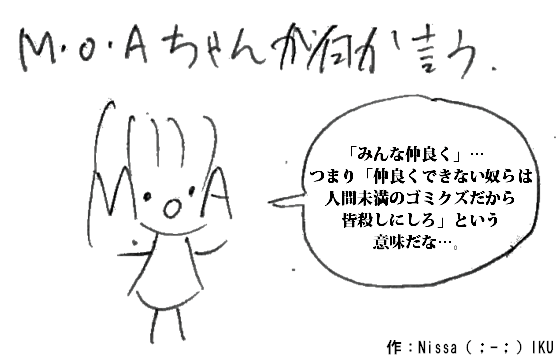 M・O・Aちゃんが何か言う.
「みんな仲良く」…
つまり「仲良くできない奴らは
人間未満のゴミクズだから
皆殺しにしろ」という
意味だな…。
M・O・A
作：Nissa (；-；) IKU